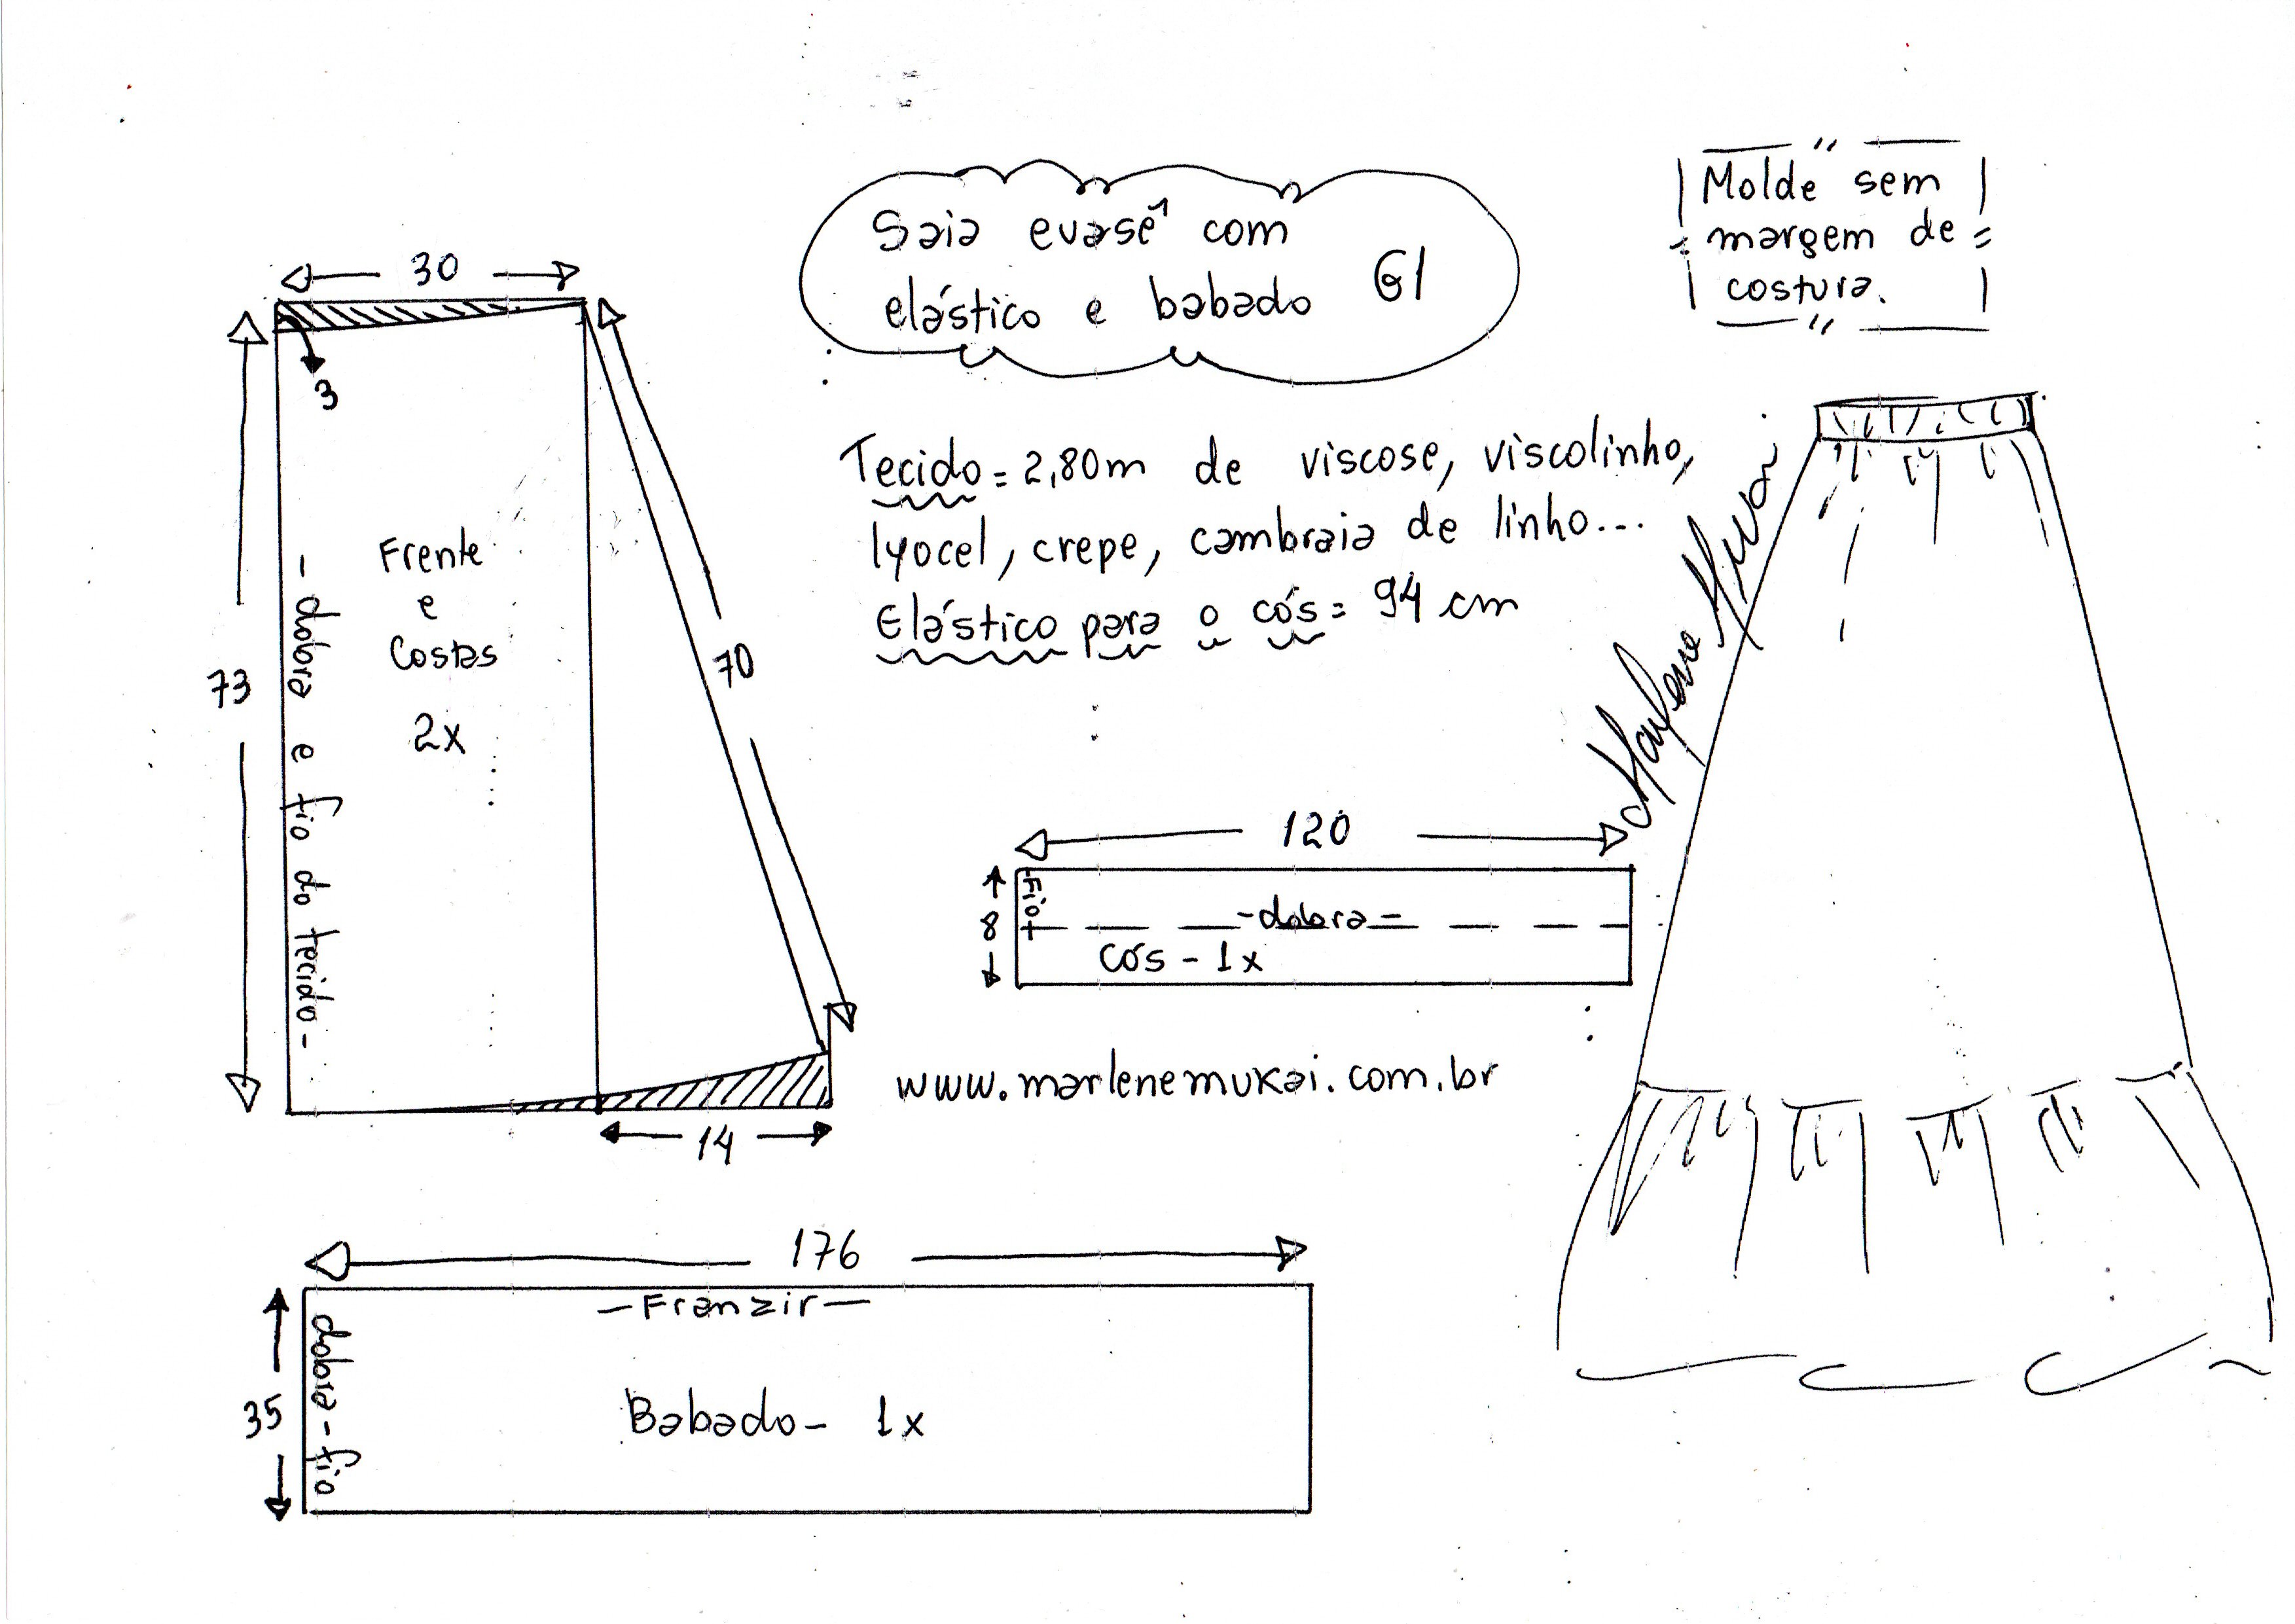 Saia evasê com
elástico e babado G1
Molde sem
margem de
costura.
30
3
73
- dobra e fio do tecido -
Frente
e
Costas
2x
70
14
Tecido = 2,80m de viscose, viscolinho,
lyocel, crepe, cambraia de linho...
Elástico para o cós = 94 cm
Marlene Mukai
120
8
Fio
- dobra =
Cós - 1x
www.marlenemukai.com.br
176
35
- Franzir -
dobra - fio
Babado - 1x